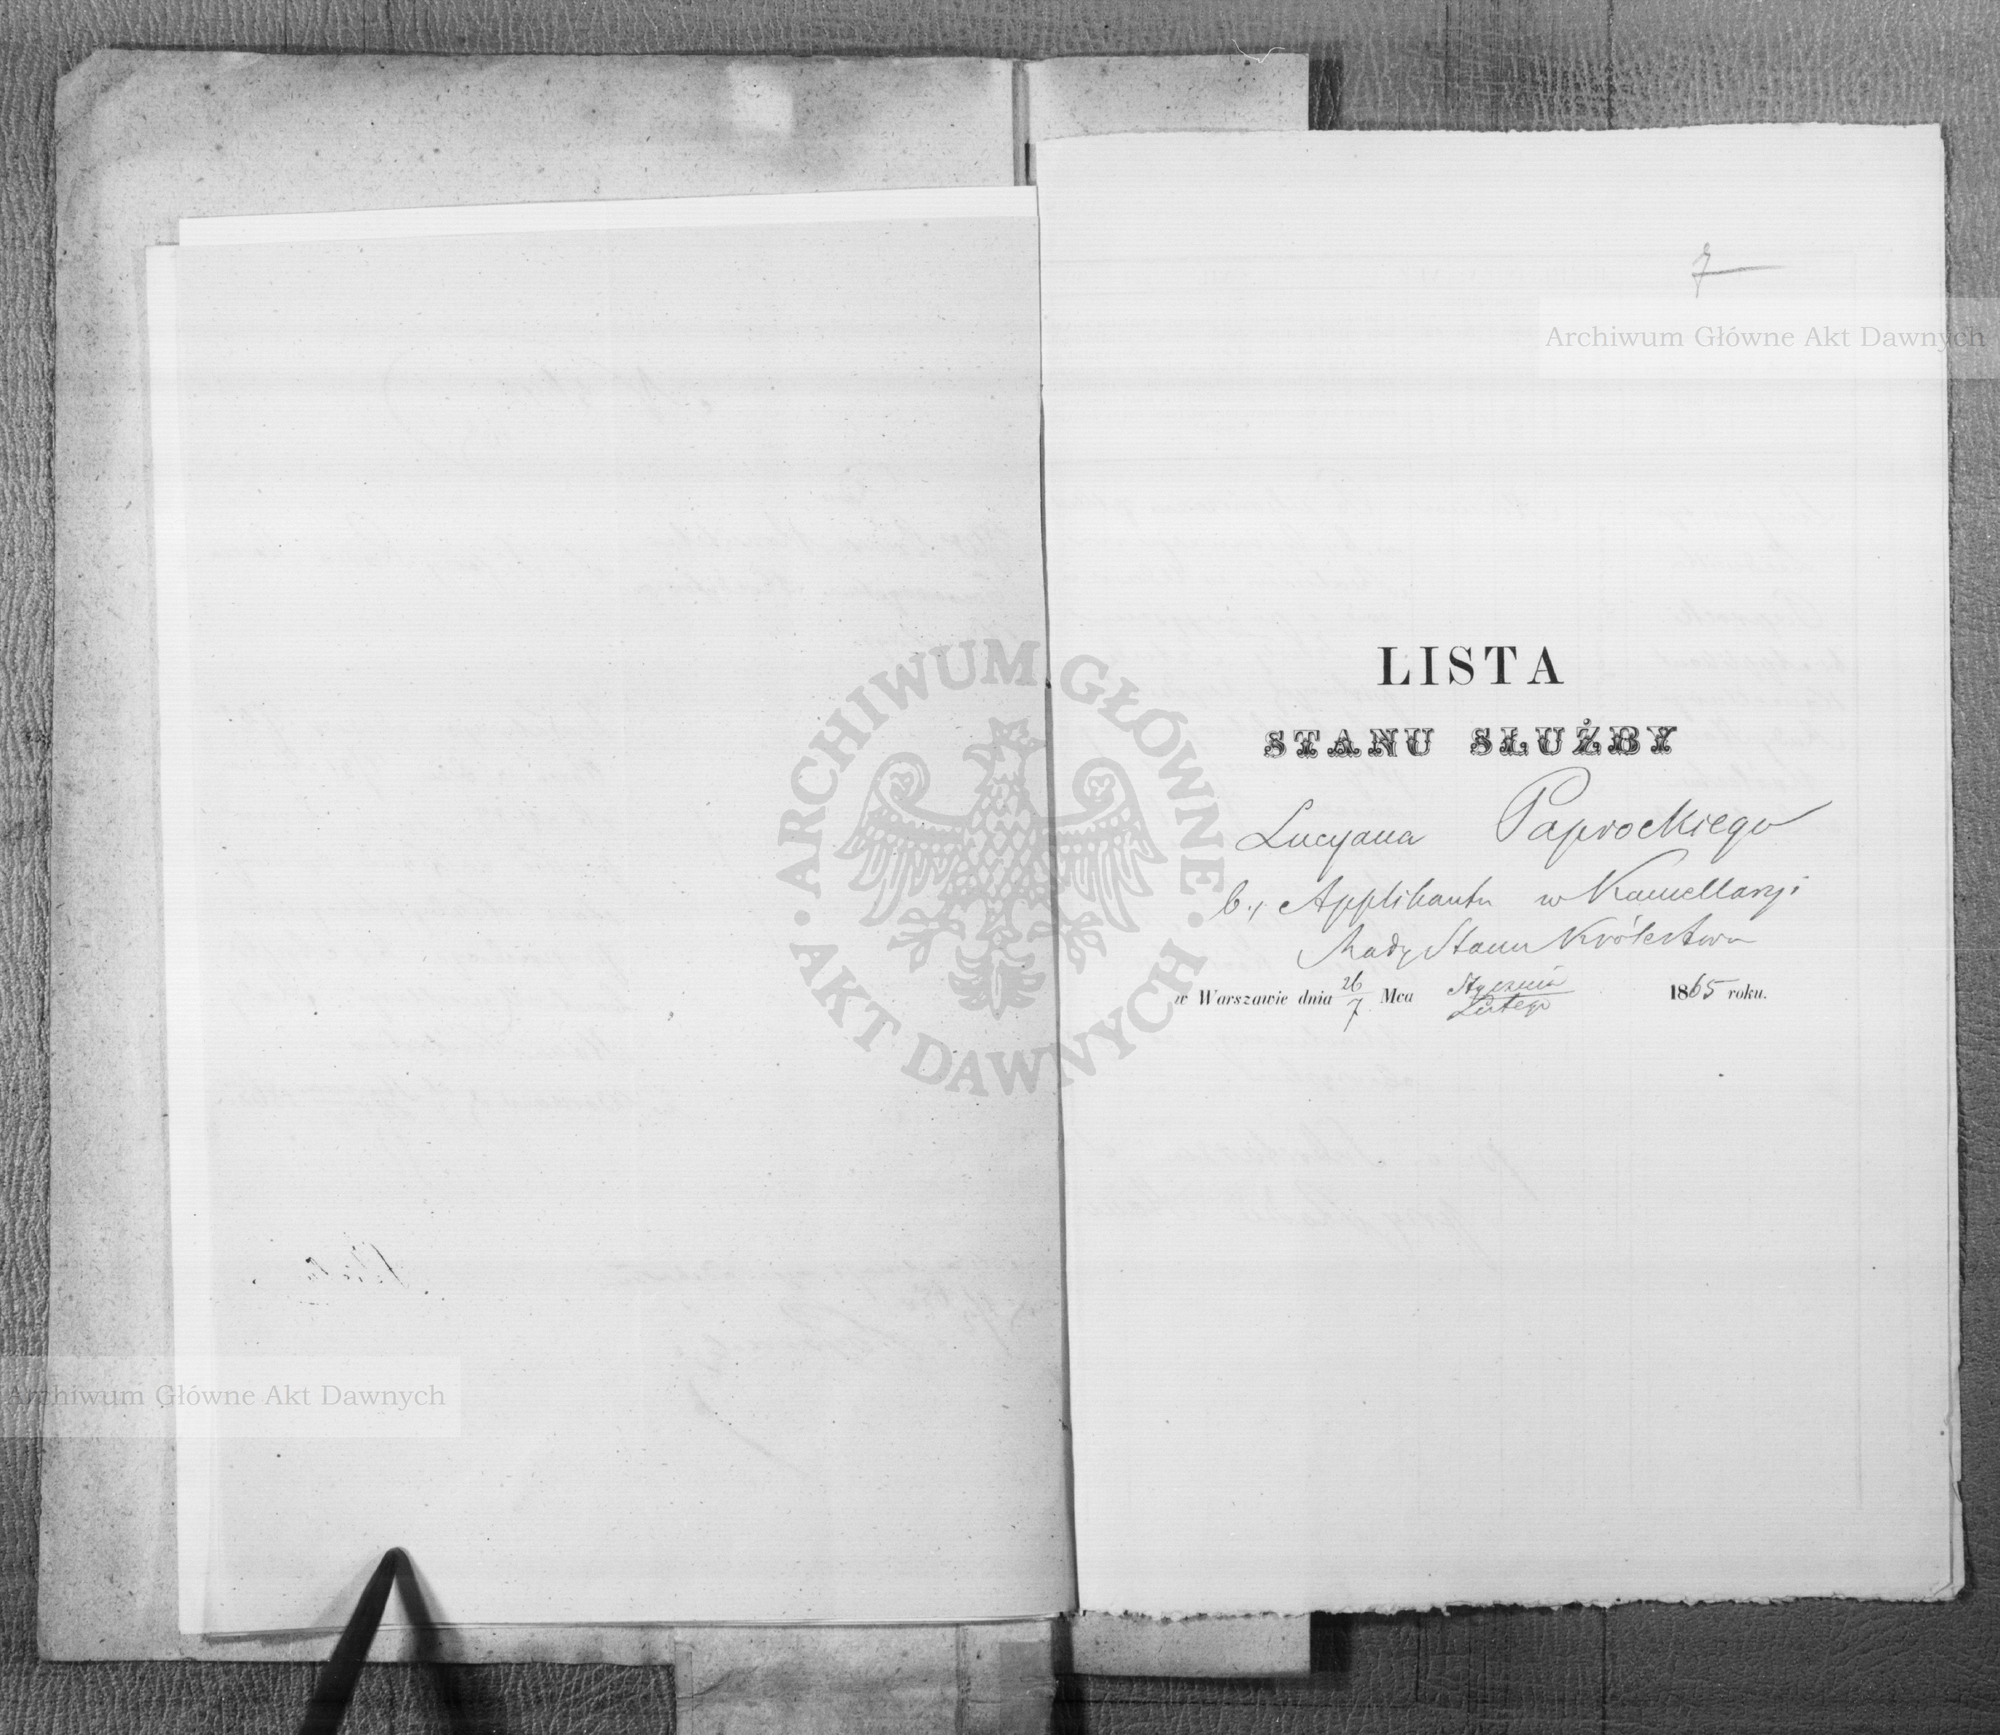 7
Archiwum Główne Akt Dawnych
LISTA
STANU SŁUŻBY
Lucyana Paprockiego
b. Applikanta w Kancellaryi
Rady Stanu Królestwa
w Warszawie dnia 26/7 Mca Stycznia/Lutego 1865 roku.
ARCHIWUM GŁÓWNE
AKT DAWNYCH
Archiwum Główne Akt Dawnych